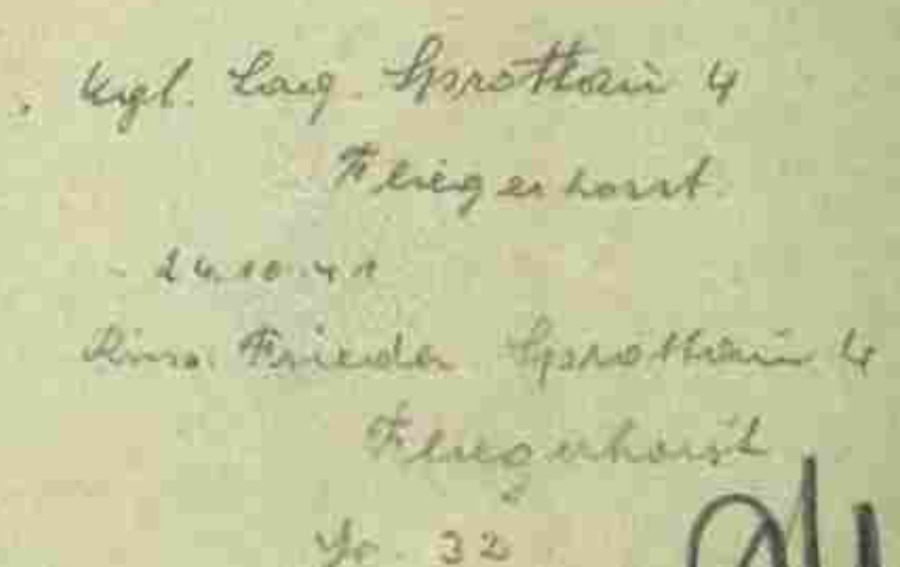 Kgl. Lag. Sprottau 4
Fliegerhorst
24.10.41
Frieda Sprottau 4
Fliegerhorst
32